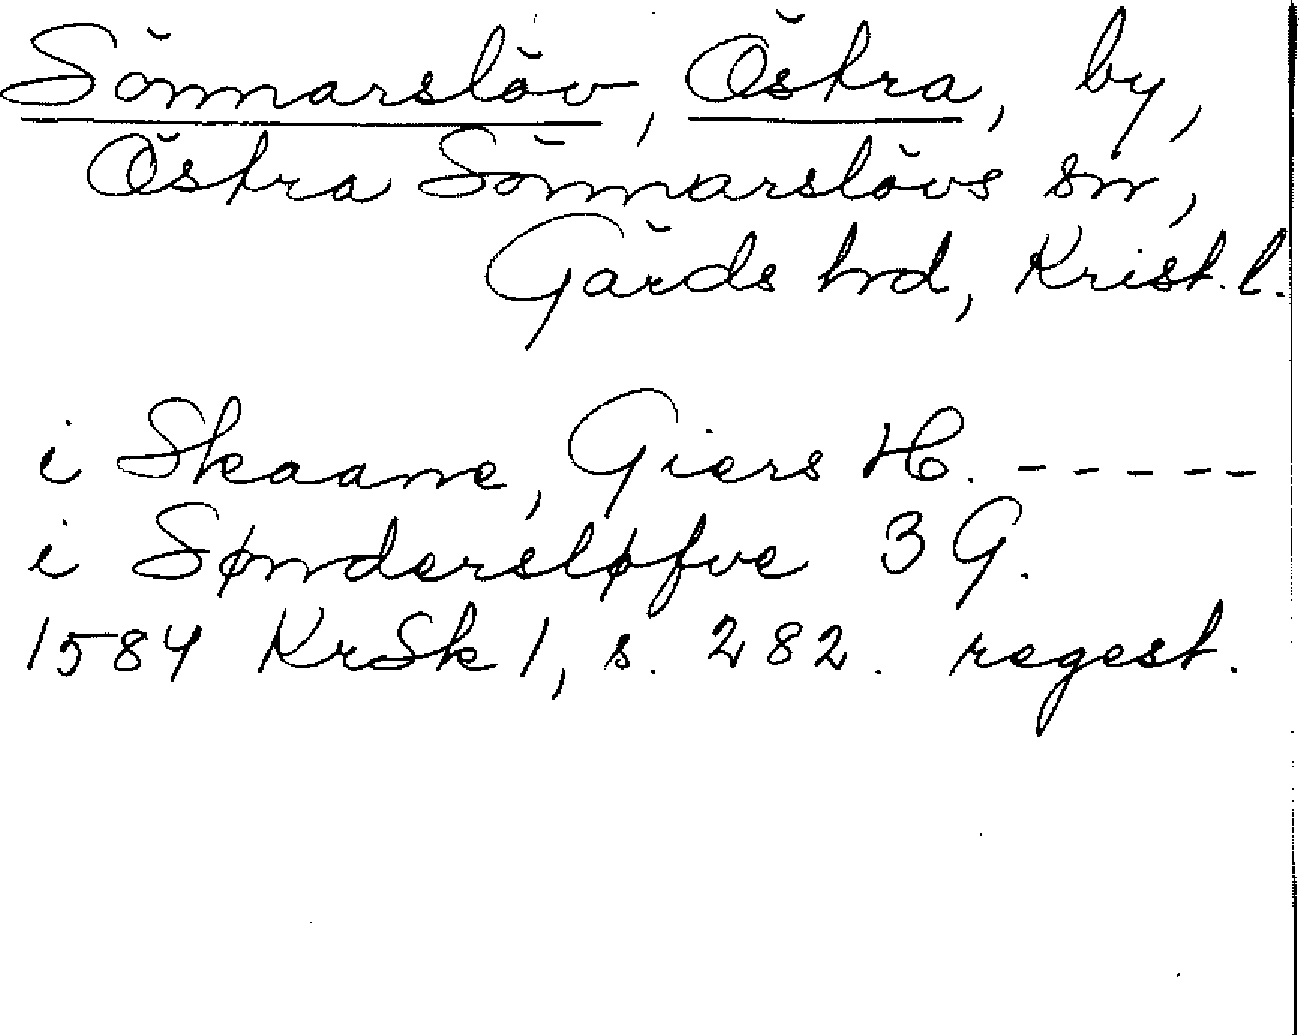 Sönnarslöv, Östra, by,
Östra Sönnarslövs sn,
Gärds hrd, Krist. l.
i Skaane, Giers H. -----
i Søndersløfve 3 G.
1584 KrSk 1, s. 282. regest.